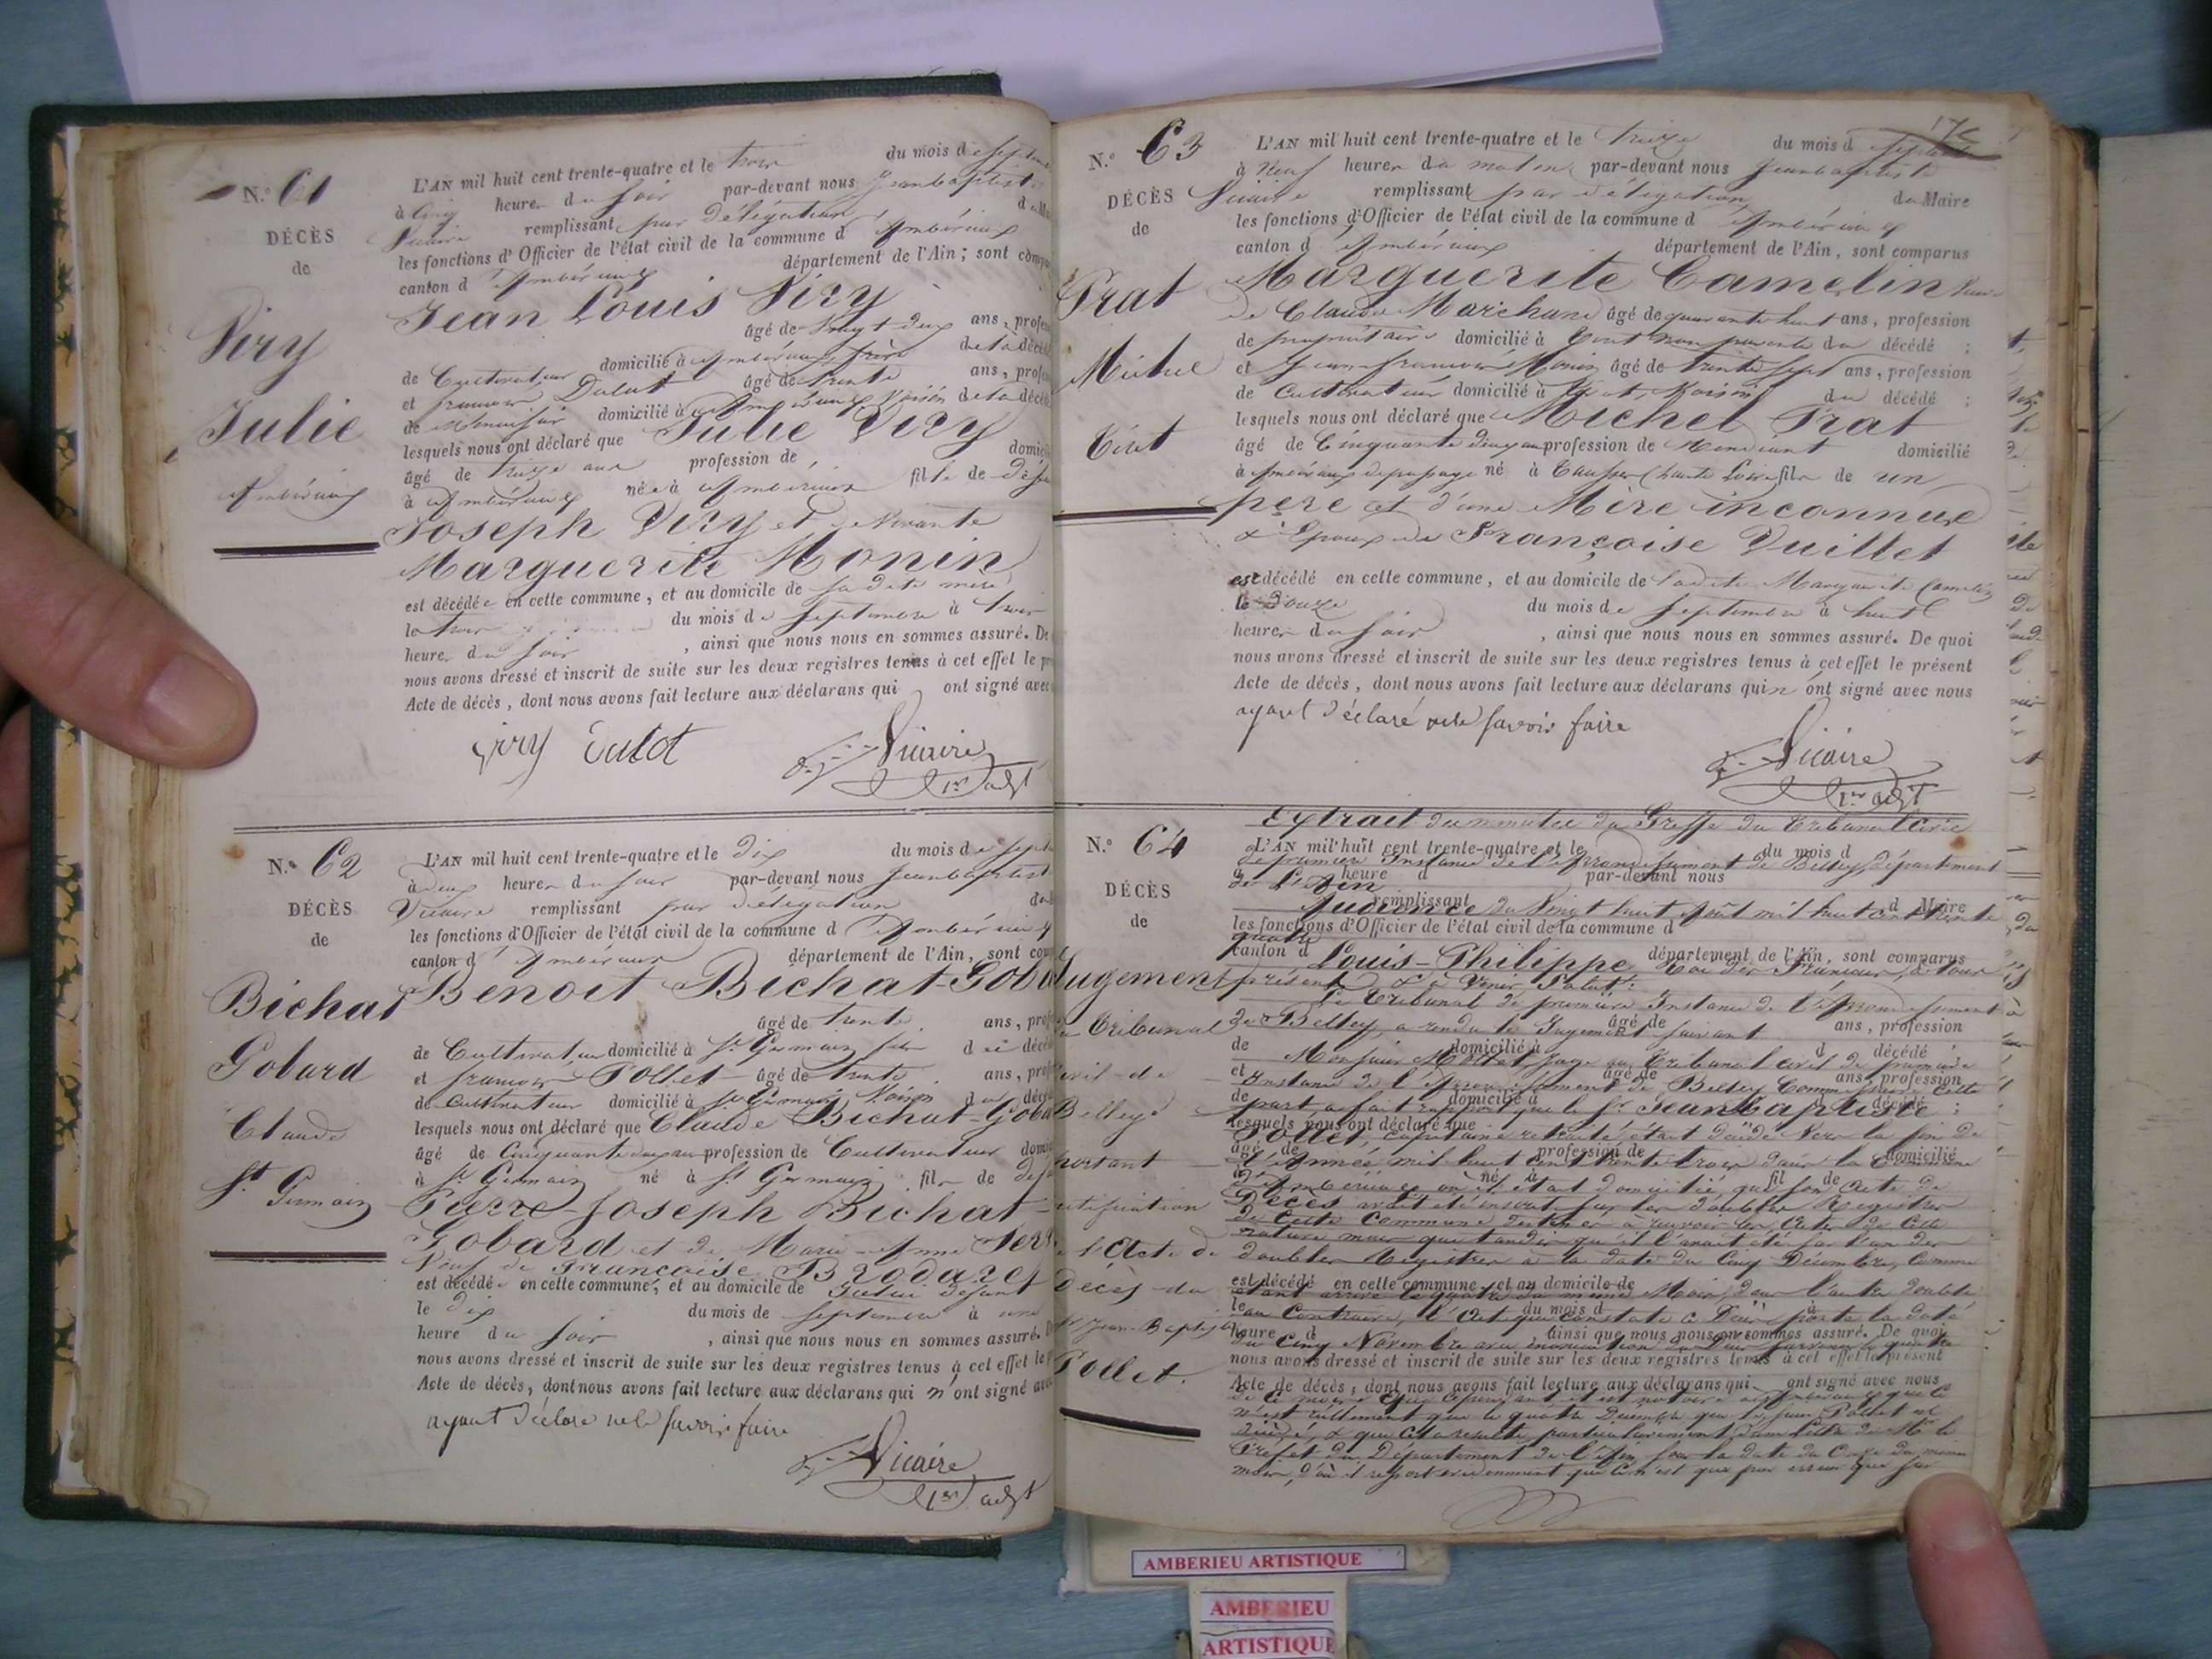 N.° 61
DÉCÈS
de
Viry
Julie
Ambérieux
L'AN mil huit cent trente-quatre et le trois du mois de Septem
à Cinq heures du soir par-devant nous Jean baptiste
Vicaire remplissant par délégation du Ma
les fonctions d'Officier de l'état civil de la commune d'Ambérieux
canton d'Ambérieux département de l'Ain; sont compa
Jean Louis Viry
âgé de vingt deux ans, profes
de Cultivateur domicilié à Ambérieux frère de la décéd
et françois Dulot âgé de trente ans, profes
de Menuisier domicilié à Ambérieux Voisin de la décéd
lesquels nous ont déclaré que Julie Viry
âgé de treize ans profession de domici
à Ambérieux née à Ambérieux fille de défu
Joseph Viry et de Vivante
Marguerite Monin
est décédée en cette commune, et au domicile de sa dite mère
le trois du mois de Septembre à trois
heures du soir, ainsi que nous nous en sommes assuré. De
nous avons dressé et inscrit de suite sur les deux registres tenus à cet effet le pr
Acte de décès, dont nous avons fait lecture aux déclarans qui ont signé avec
Viry Dulot
Vicaire
1er adjt
N.° 62
DÉCÈS
de
Bichat
Gobard
Claude
St Germain
L'AN mil huit cent trente-quatre et le dix du mois de Sept
à deux heures du soir par-devant nous Jean baptist
Vicaire remplissant par délégation du
les fonctions d'Officier de l'état civil de la commune d'Ambérieux
canton d'Ambérieux département de l'Ain, sont com
Benoit Bichat-Goba
âgé de trente ans, prof
de Cultivateur domicilié à St Germain fils du décéd
et françois Pollet âgé de trente ans, prof
de Cultivateur domicilié à St Germain Voisin du décéd
lesquels nous ont déclaré que Claude Bichat-Goba
âgé de Cinquante deux ans profession de Cultivateur domi
à St Germain né à St Germain fils de défu
Pierre-Joseph Bichat-
Gobard et de Marie-Anne
Veuf de Françoise Brodaret
est décédé en cette commune, et au domicile de
le dix du mois de Septembre à une
heure du soir, ainsi que nous nous en sommes assuré. D
nous avons dressé et inscrit de suite sur les deux registres tenus à cet effet le
Acte de décès, dont nous avons fait lecture aux déclarans qui n'ont signé avec
ayant déclaré ne le savoir faire
Vicaire
1er adjt
N.° 63
DÉCÈS
de
Prat
Michel
Tiret
L'AN mil huit cent trente-quatre et le treize du mois de Septembre
à Neuf heures du matin par-devant nous Jean baptiste
Vicaire remplissant par délégation du Maire
les fonctions d'Officier de l'état civil de la commune d'Ambérieux
canton d'Ambérieux département de l'Ain, sont comparus
Marguerite Camelin Veuve
de Claude Marchand âgé de quarante huit ans, profession
de propriétaire domicilié à Tiret non parente du décédé;
et Jean françois Monin âgé de trente sept ans, profession
de Cultivateur domicilié à Tiret, Voisin du décédé;
lesquels nous ont déclaré que Michel Prat
âgé de Cinquante deux ans profession de Mendiant domicilié
à Ambérieux de passage né à (haute Loire) fils de un
père et d'une Mère inconnue
& Epoux de Françoise Vuillet
est décédé en cette commune, et au domicile de ladite Marguerite Camelin
le Douze du mois de Septembre à huit
heures du soir, ainsi que nous nous en sommes assuré. De quoi
nous avons dressé et inscrit de suite sur les deux registres tenus à cet effet le présent
Acte de décès, dont nous avons fait lecture aux déclarans qui n'ont signé avec nous
ayant déclaré ne le savoir faire
Vicaire
1er adjt
N.° 64
DÉCÈS
de
Jugement
du Tribunal
civil de
Belley
portant
rectification
de l'Acte de
Décès du
Sr Jean-Baptiste
Pollet.
Extrait des minutes du Greffe du Tribunal Civil
de première Instance de l'Arrondissement de Belley, département
de l'Ain
Audience du Vingt huit Août mil huit cent trente
quatre
Louis-Philippe Roi des Français, à tous
présents & à Venir Salut:
Le Tribunal de première Instance de l'Arrondissement
de Belley, a rendu le Jugement suivant
Monsieur Mollet Juge au Tribunal civil de première
Instance de l'Arrondissement de Belley Commissaire en cette
part, a fait rapport que le Sr Jean baptiste
Pollet, capitaine retraité était décédé vers la fin de
l'Année mil huit cent trente trois dans la Commune
d'Ambérieux où il était domicilié, que son Acte de
Décès avait été inscrit sur les doubles Registres
de Cette Commune destinés à recevoir les Actes de Cette
nature mais que tandis qu'il l'avait été sur l'un des
doubles Registres à la date du Cinq Décembre, Comme
étant arrivé le quatre du même Mois, dans l'autre double
au Contraire, l'Acte qui constate ce Décès porte la date
du Cinq Novembre avec énonciation du Décès survenu le quatre
de ce mois que cependant il est notoire à Ambérieux que ce
n'est réellement que le quatre Décembre que le sieur Pollet est
décédé, & que cela résulte particulièrement d'une lettre de Mr le
Préfet du Département de l'Ain sous la date du Onze du même
mois, d'où il ressort évidemment que ce n'est que par erreur que sur
L'AN mil huit cent trente-quatre et le du mois d
à heure d par-devant nous
remplissant d Maire
les fonctions d'Officier de l'état civil de la commune d
canton d département de l'Ain, sont comparus
âgé de ans, profession
de domicilié à d décédé;
et âgé de ans, profession
de domicilié à d décédé;
lesquels nous ont déclaré que
âgé de profession de domicilié
à né à fil de
est décédé en cette commune, et au domicile de
le du mois d à
heure d ainsi que nous nous en sommes assuré. De quoi
nous avons dressé et inscrit de suite sur les deux registres tenus à cet effet le présent
Acte de décès, dont nous avons fait lecture aux déclarans qui ont signé avec nous
AMBERIEU ARTISTIQUE
AMBERIEU
ARTISTIQUE